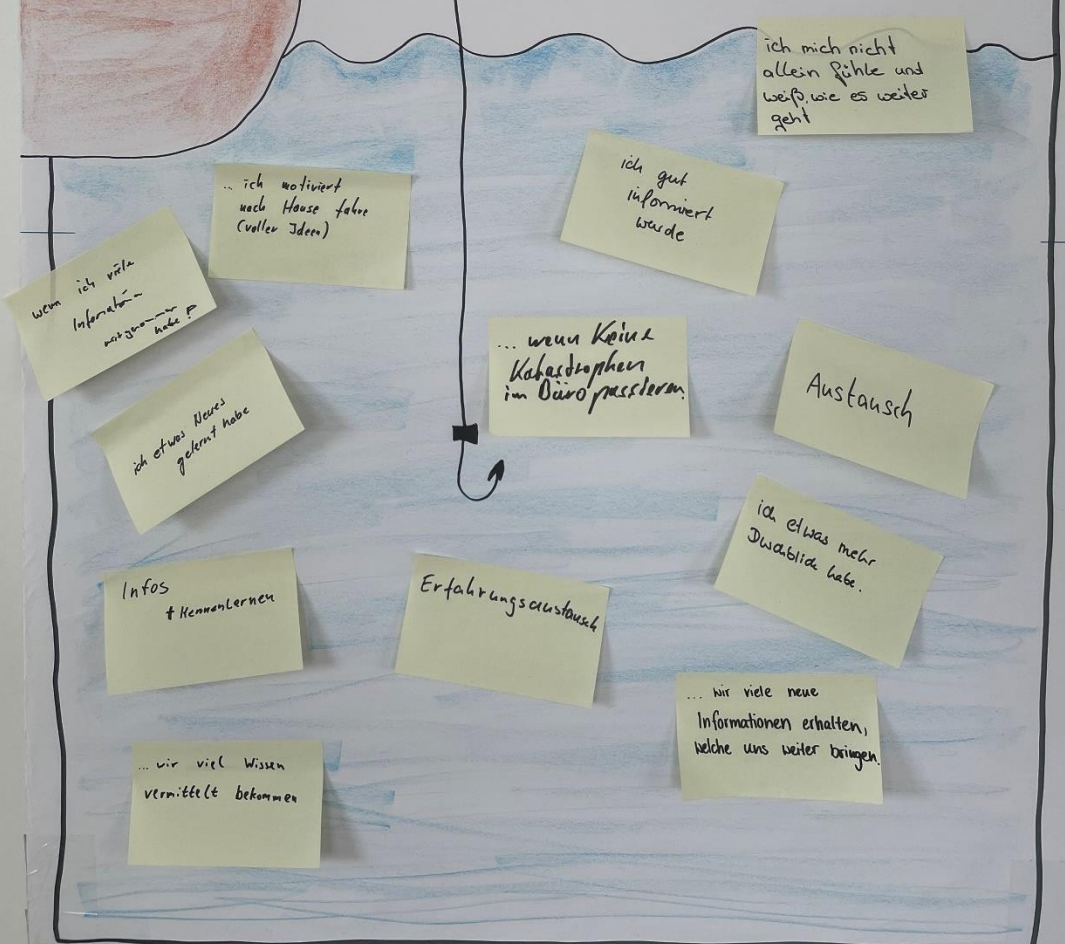 ich mich nicht
allein fühle und
weiß, wie es weiter
geht
... ich motiviert
nach Hause fahre
(voller Ideen)
ich gut
informiert
werde
wenn ich viele
Information
mitgenommen
habe?
... wenn Keine
Katastrophen
im Büro passieren.
Austausch
ich etwas Neues
gelernt habe
ich etwas mehr
Durchblick habe.
Infos
+ Kennenlernen
Erfahrungsaustausch
... wir viele neue
Informationen erhalten,
welche uns weiter bringen.
... wir viel Wissen
vermittelt bekommen